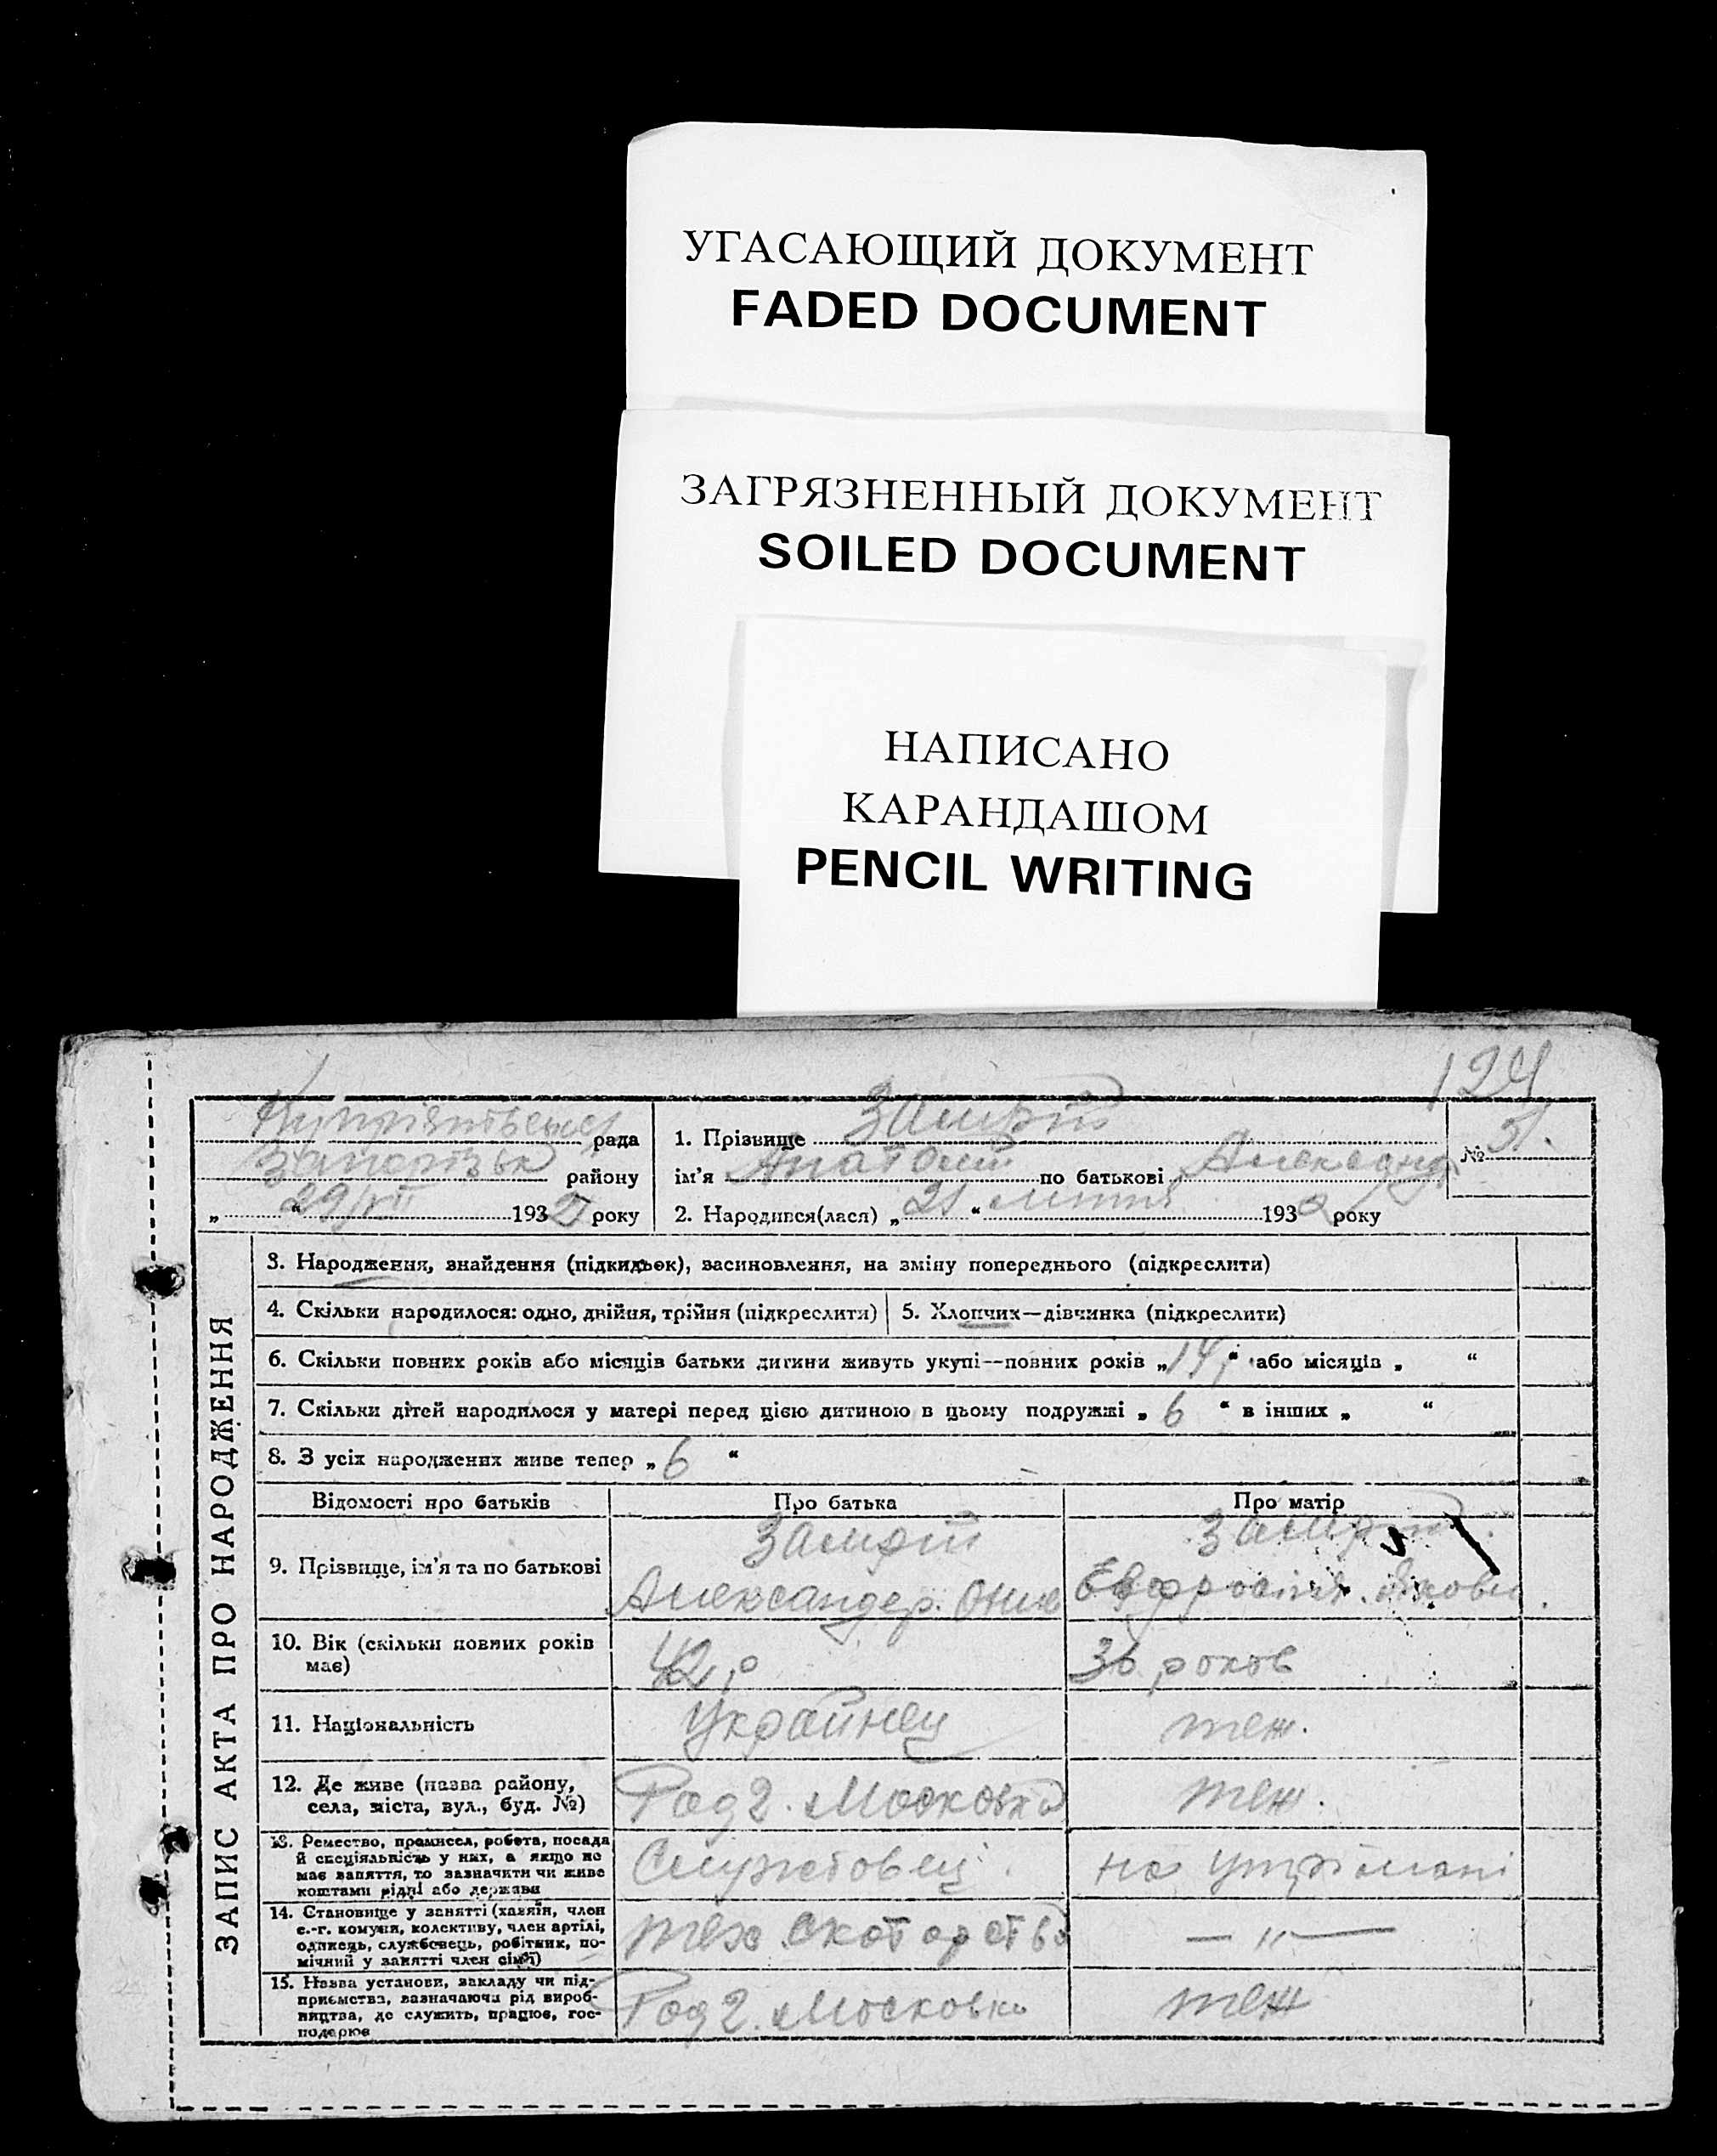 УГАСАЮЩИЙ ДОКУМЕНТ
FADED DOCUMENT
ЗАГРЯЗНЕННЫЙ ДОКУМЕНТ
SOILED DOCUMENT
НАПИСАНО
КАРАНДАШОМ
PENCIL WRITING
124
рада
району
193 року
1. Прізвище
ім'я Анатолій по батькові Александр
2. Народився(лася) „ 21 “ липня 1932 року
№ 51.
ЗАПИС АКТА ПРО НАРОДЖЕННЯ
3. Народження, знайдення (підкидьок), всиновлення, на зміну попереднього (підкреслити)
4. Скільки народилося: одно, двійня, трійня (підкреслити)
5. Хлопчик—дівчинка (підкреслити)
6. Скільки повних років або місяців батьки дитини живуть укупі—повних років „ 14 “ або місяців „ “
7. Скільки дітей народилося у матері перед цією дитиною в цьому подружжі „ 6 “ в інших „ “
8. З усіх народжених живе тепер „ 6 “
Відомості про батьків
Про батька
Про матір
9. Прізвище, ім'я та по батькові
Александер
10. Вік (скільки повних років
має)
42 р
36 років
11. Національність
Украйнец
теж.
12. Де живе (назва району,
села, міста, вул., буд. №)
Рад 2. Московка
теж.
13. Ремество, промисел, робота, посада
й спеціяльність у них, а якщо не
має заняття, то зазначити чи живе
коштами рідні або держави
Службовец
на утрімані
14. Становище у занятті (хазяїн, член
с.-г. комуни, колективу, член артілі,
одинець, службовець, робітник, по-
мічний у занятті член сім'ї)
— „ —
15. Назва установи, закладу чи під-
приємства, зазначаючи рід вироб-
ництва, де служить, працює, гос-
подарює
Рад 2. Московка
теж